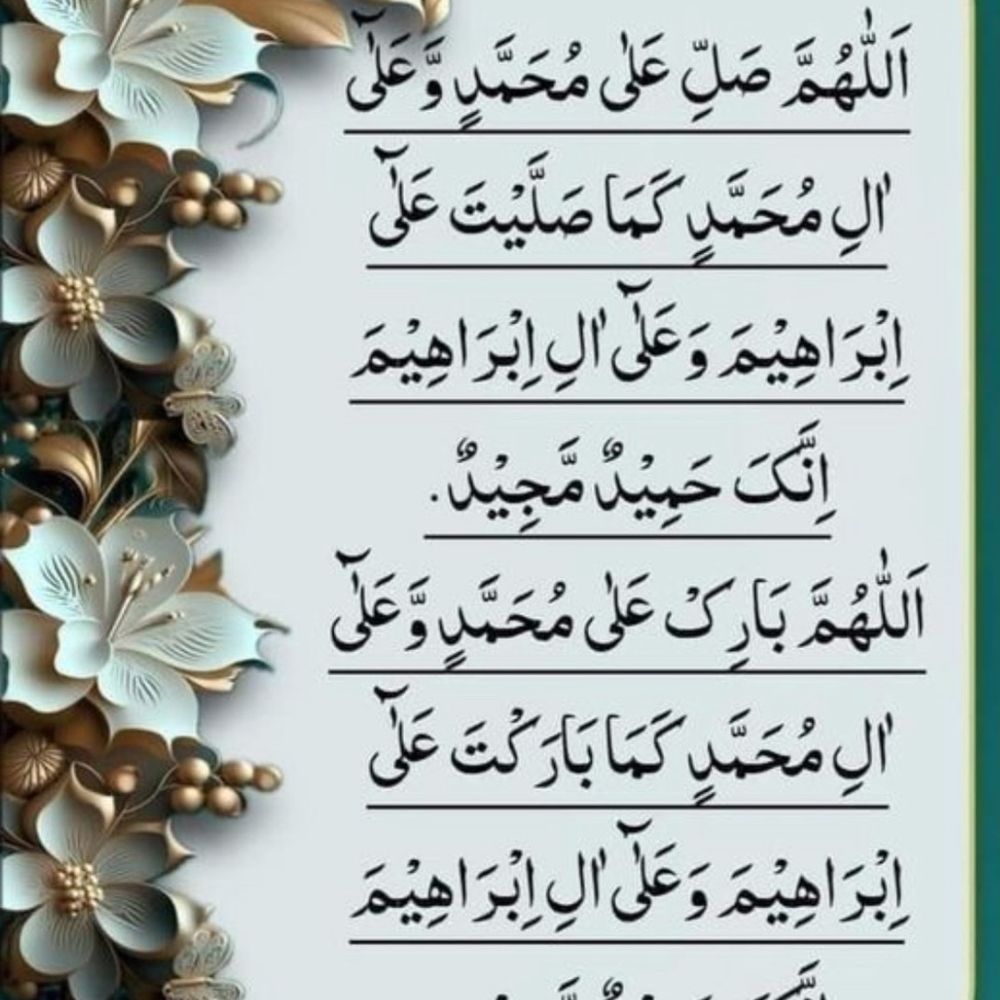 اَللّٰهُمَّ صَلِّ عَلٰى مُحَمَّدٍ وَّعَلٰٓى
اٰلِ مُحَمَّدٍ كَمَا صَلَّيْتَ عَلٰٓى
اِبْرَاهِيْمَ وَعَلٰٓى اٰلِ اِبْرَاهِيْمَ
اِنَّکَ حَمِيْدٌ مَّجِيْدٌ.
اَللّٰهُمَّ بَارِکْ عَلٰى مُحَمَّدٍ وَّعَلٰٓى
اٰلِ مُحَمَّدٍ كَمَا بَارَكْتَ عَلٰٓى
اِبْرَاهِيْمَ وَعَلٰٓى اٰلِ اِبْرَاهِيْمَ